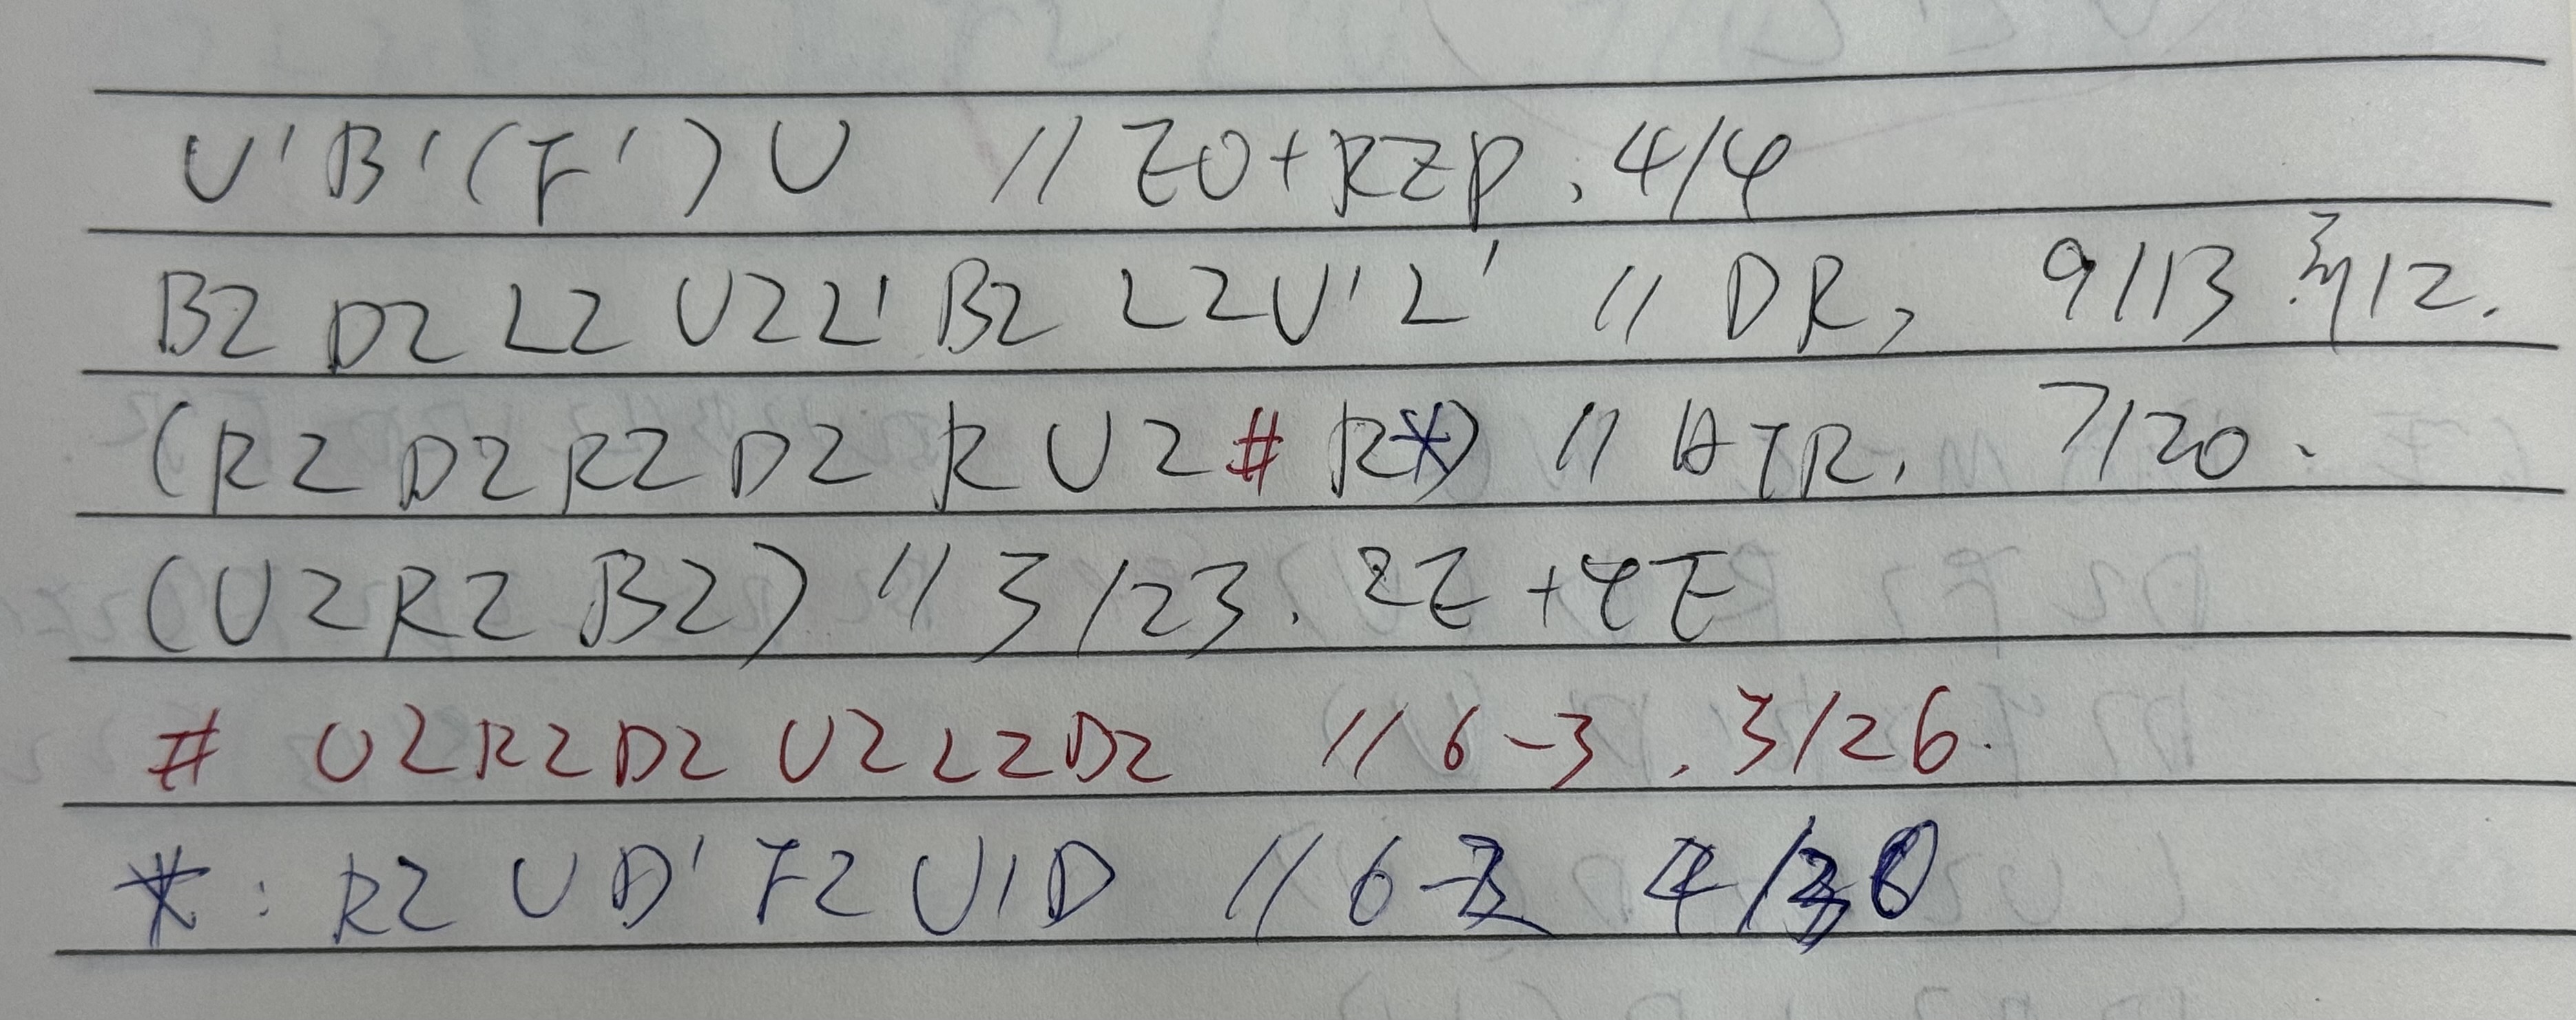 U' B' (F') U // EO+RZP, 4/4
B2 D2 L2 U2 L' B2 L2 U' L' // DR, 9/13 12.
(R2 D2 R2 D2 R U2 # R*) // HTR, 7/20.
(U2 R2 B2) // 3/23. 2E+4E
# U2 R2 D2 U2 L2 D2 // 6-3, 3/26.
*: R2 U D' F2 U' D // 6-2 4/30